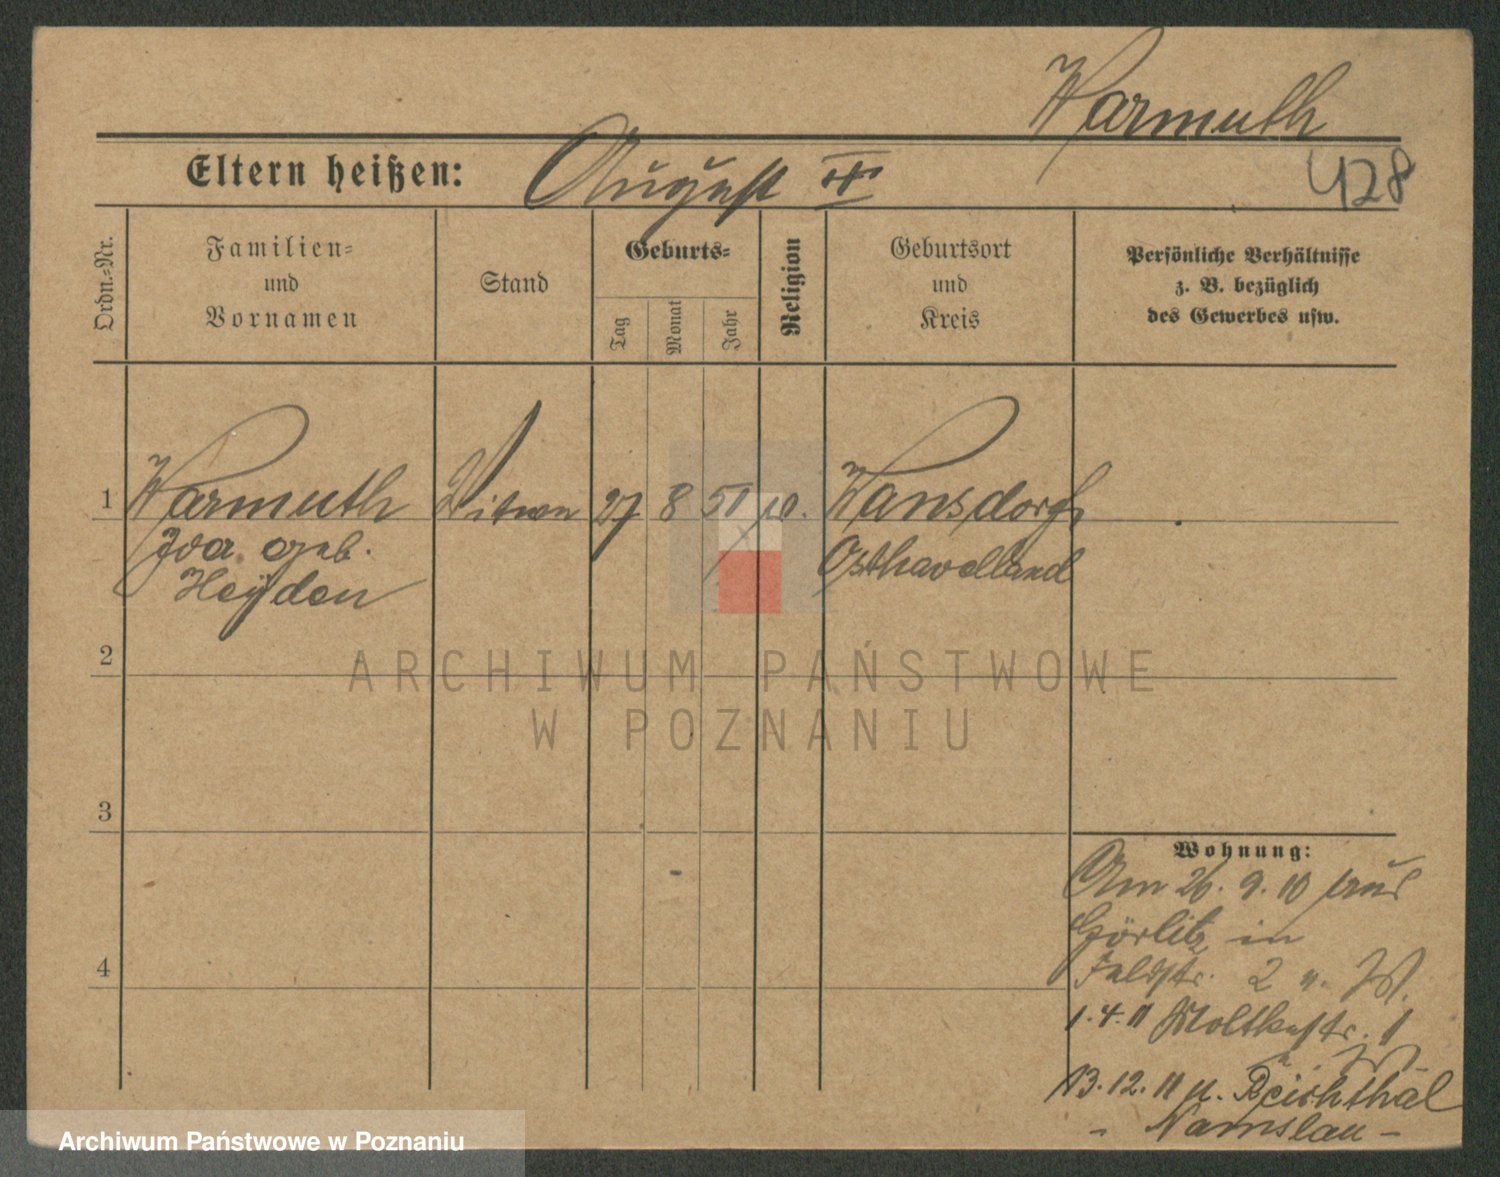 Warmuth
428
Eltern heißen: August
Ordn.-Nr.
Familien-
und
Vornamen
Stand
Geburts-
Tag
Monat
Jahr
Religion
Geburtsort
und
Kreis
Persönliche Verhältnisse
z. B. bezüglich
des Gewerbes usw.
1 Warmuth Witwe 27 8 51 Wansdorf
geb. Osthavelland
Heyden
2
3
4
Wohnung:
Am 26. 9. 10 aus
Görlitz in
Feldstr. 2
1.4.11 Moltkestr. 1
13.12.11 n. Reichthal
- Namslau -
ARCHIWUM PAŃSTWOWE
W POZNANIU
Archiwum Państwowe w Poznaniu